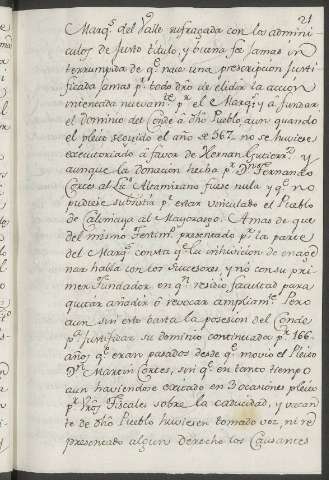 21
Marq.s del Valle sufragada con los admini-
culos de Justo titulo, y buena fee Jamas in
terrumpida de q.e nace una prescripcion Justi
ficada Jamas p.a todo dro de elidir la accion
intentada nuevam.te p.r el Marq.s y a fundar
el dominio del Conde à dho Pueblo aun quando
el pleito seguido el año de 567 no se huviere
executoriado à favor de Hernan Gutierr.z y
aunque la donacion hecha p.r Dn Fernando
Cortes al L.do Altamirano fuese nula y q.e no
pudiese subsistir p.r estar vinculado el Pueblo
de Calimaya al Mayorazgo. Amas de que
del mismo Testim.o presentado p.r la parte
del Marq.s consta q.e la inhivicion de enage
nar habla con los Successores, y no con su pri
mer Fundador en q.n residio facultad para
quitar añadir ò revocar ampliam.te Pero
aun sin esto basta la posesion del Conde
p.a Justificar su dominio continuado p.r 166.
años q.e eran pasados desde q.e movio el Pleito
Dn Martin Cortes, sin q.e en tanto tiempo
aun haviendose excitado en 3 ocasiones pleito
p.r vros Fiscales sobre la caducidad, y vacan
te de dho Pueblo huviesen tomado voz, ni re
presentado algun derecho los Causantes